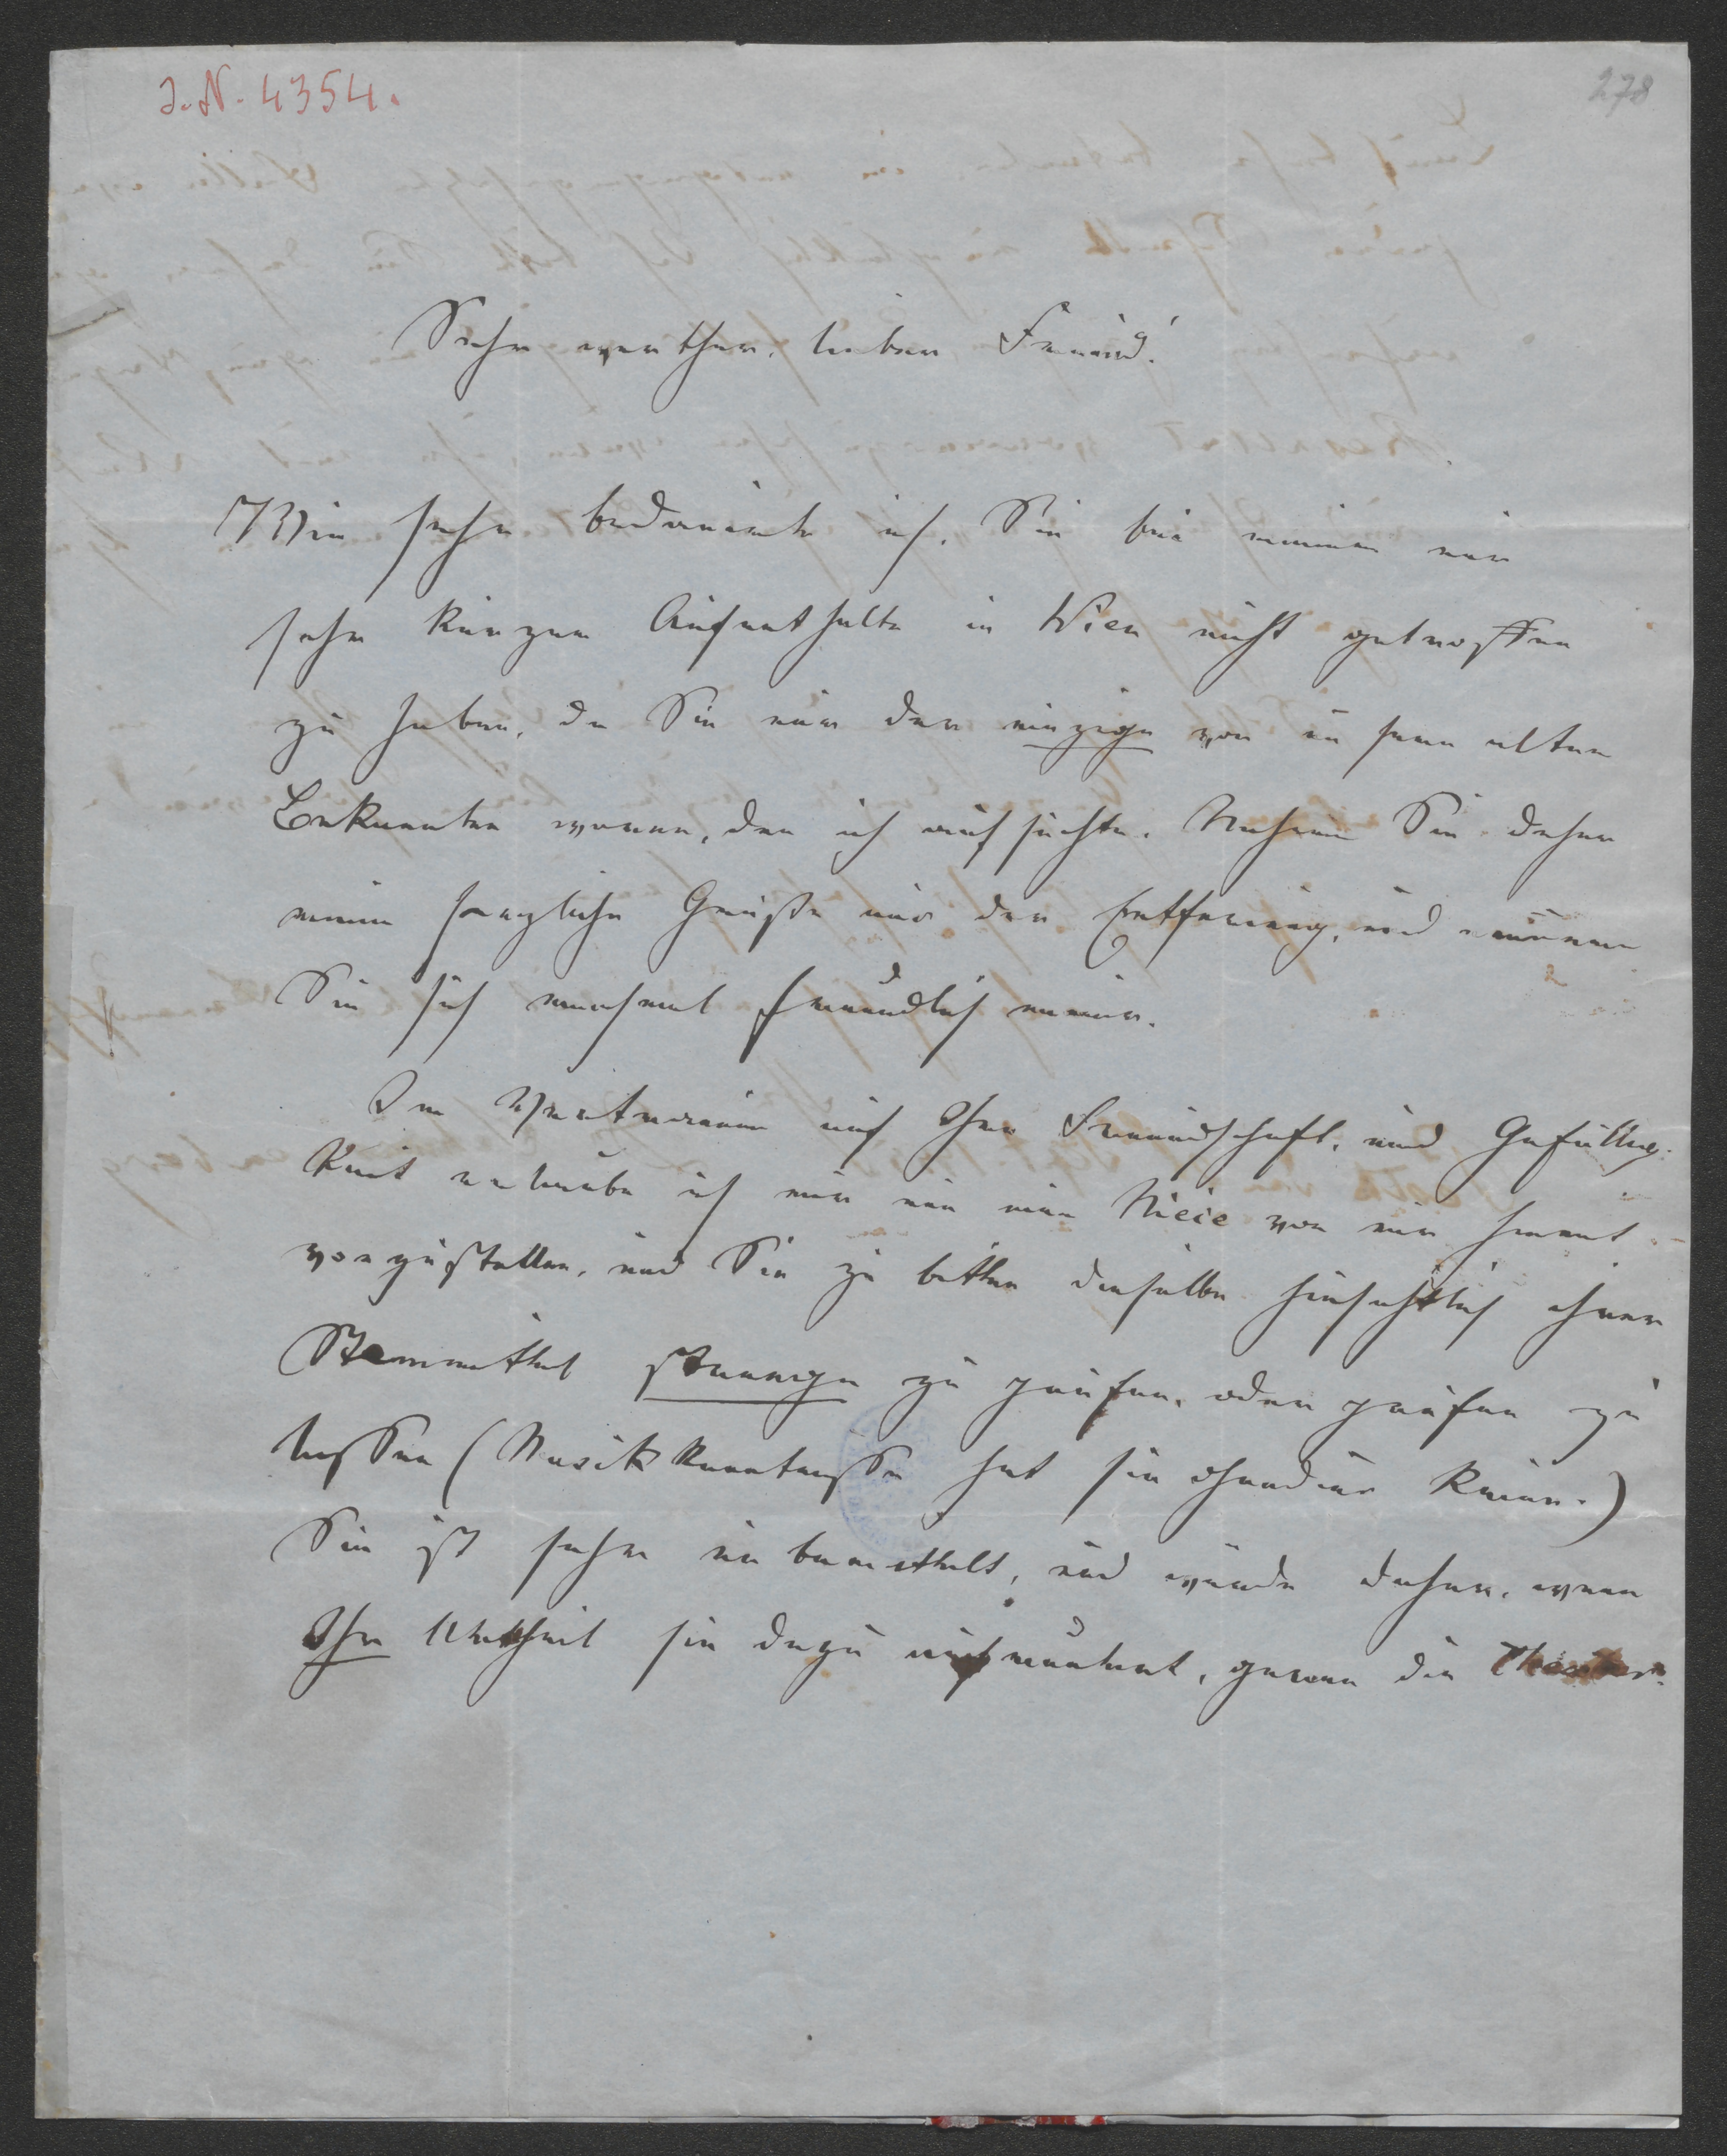 J. N. 4354.
278
Sehr werther, lieber Freund!
Wie sehr bedauerte ich, Sie bei meinem nur
sehr kurzen Aufenthalte in Wien nicht getroffen
zu haben, da Sie nur der einzige von unsern alten
Bekannten waren, den ich aufsuchte. Nehmen Sie daher
meine herzliche Grüße aus der Entfernung, und erinnern
Sie sich manchmal freundlich meiner.
Im Vertrauen auf Ihre Freundschaft, und Gefällig-
keit erlaube ich mir nun eine Niece von mir hiemit
vorzustellen, und Sie zu bitten dieselbe hinsichtlich ihrer
Stimmittel strenge zu prüfen, oder prüfen zu
lassen (Musikkenntnisse hat sie ohnedies keine.)
Sie ist sehr unbemittelt, und würde daher, wenn
Ihr Urtheil sie dazu aufmuntert, gerne die Theater-